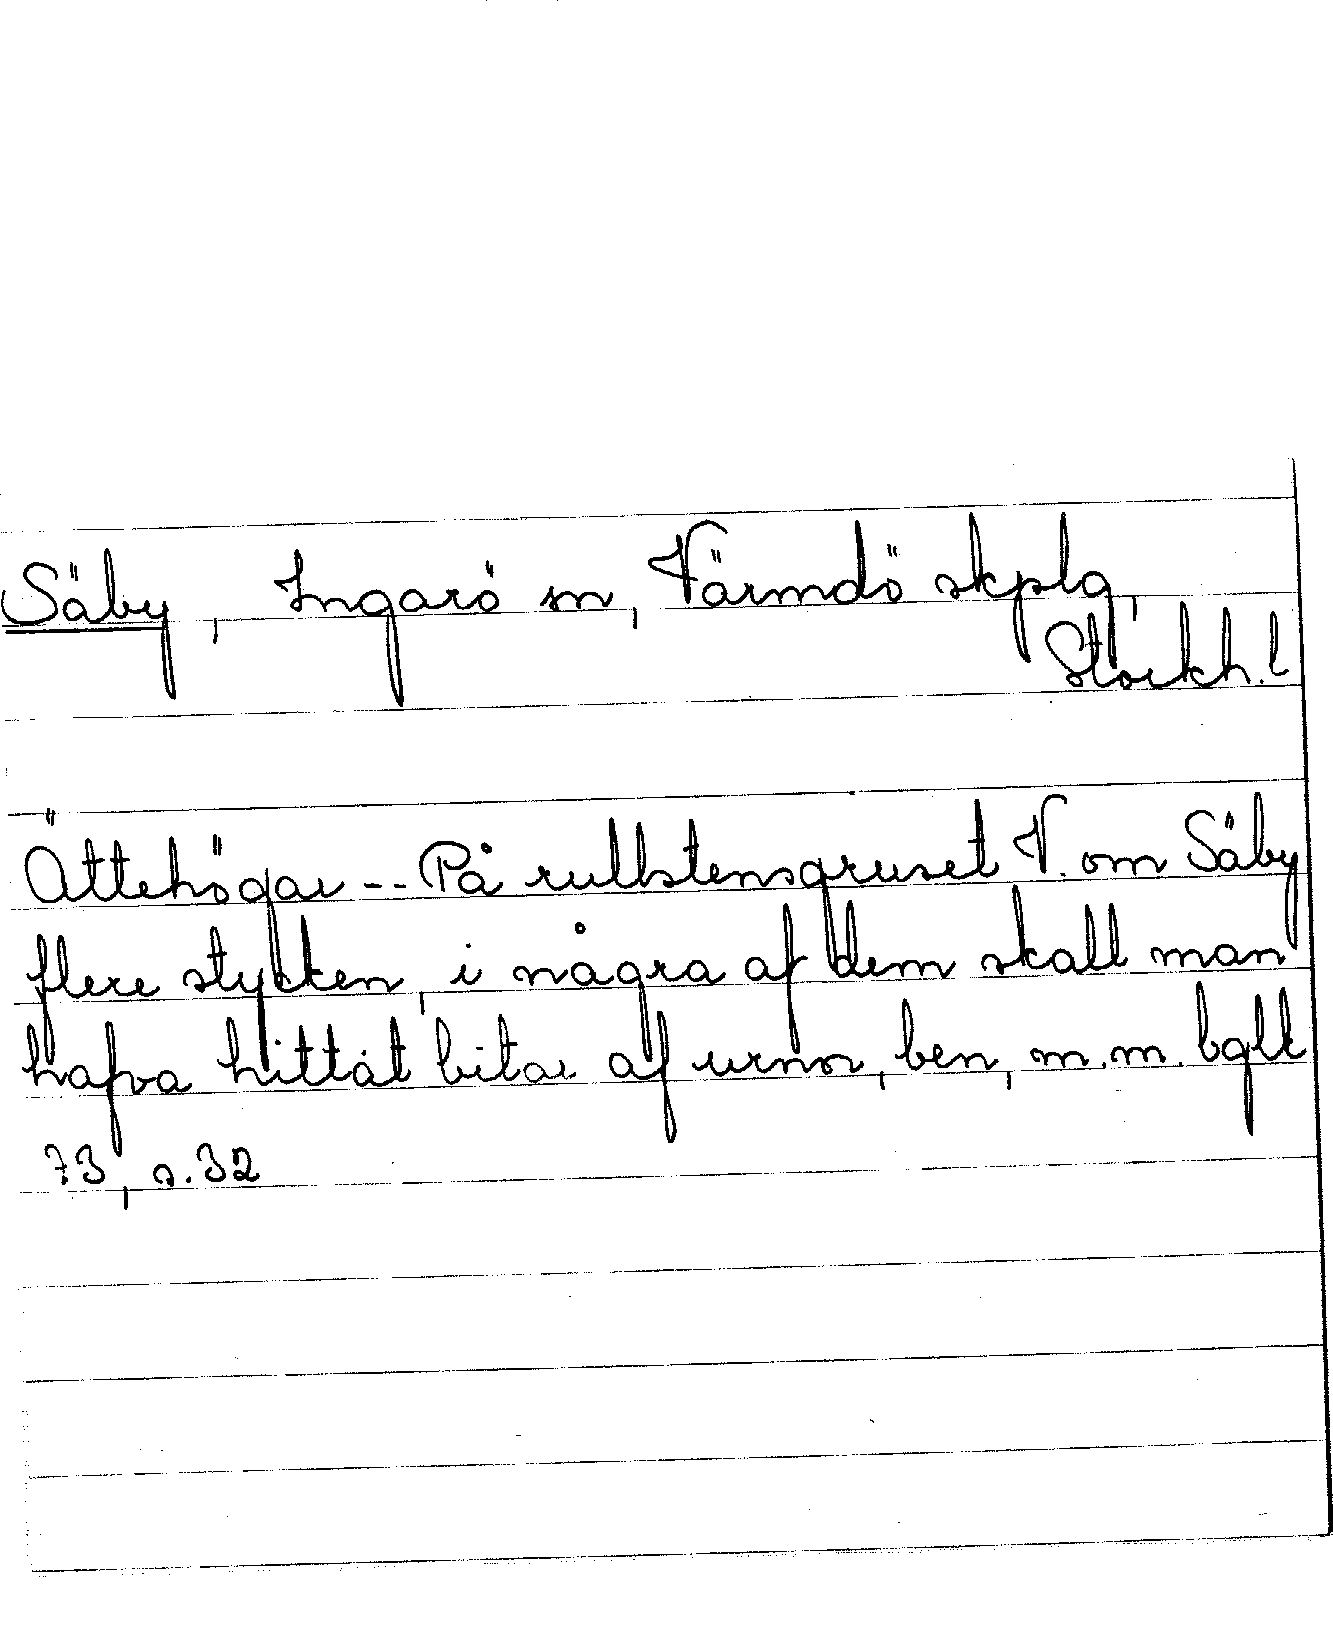 Säby, Ingarö sn, Värmdö skplg,
Stockh. l
Ättehögar -- På rullstensgruset V. om Säby
flere stycken, i några af dem skall man
hafva hittat bitar af urnor, ben, m.m. bglk
73, s. 32